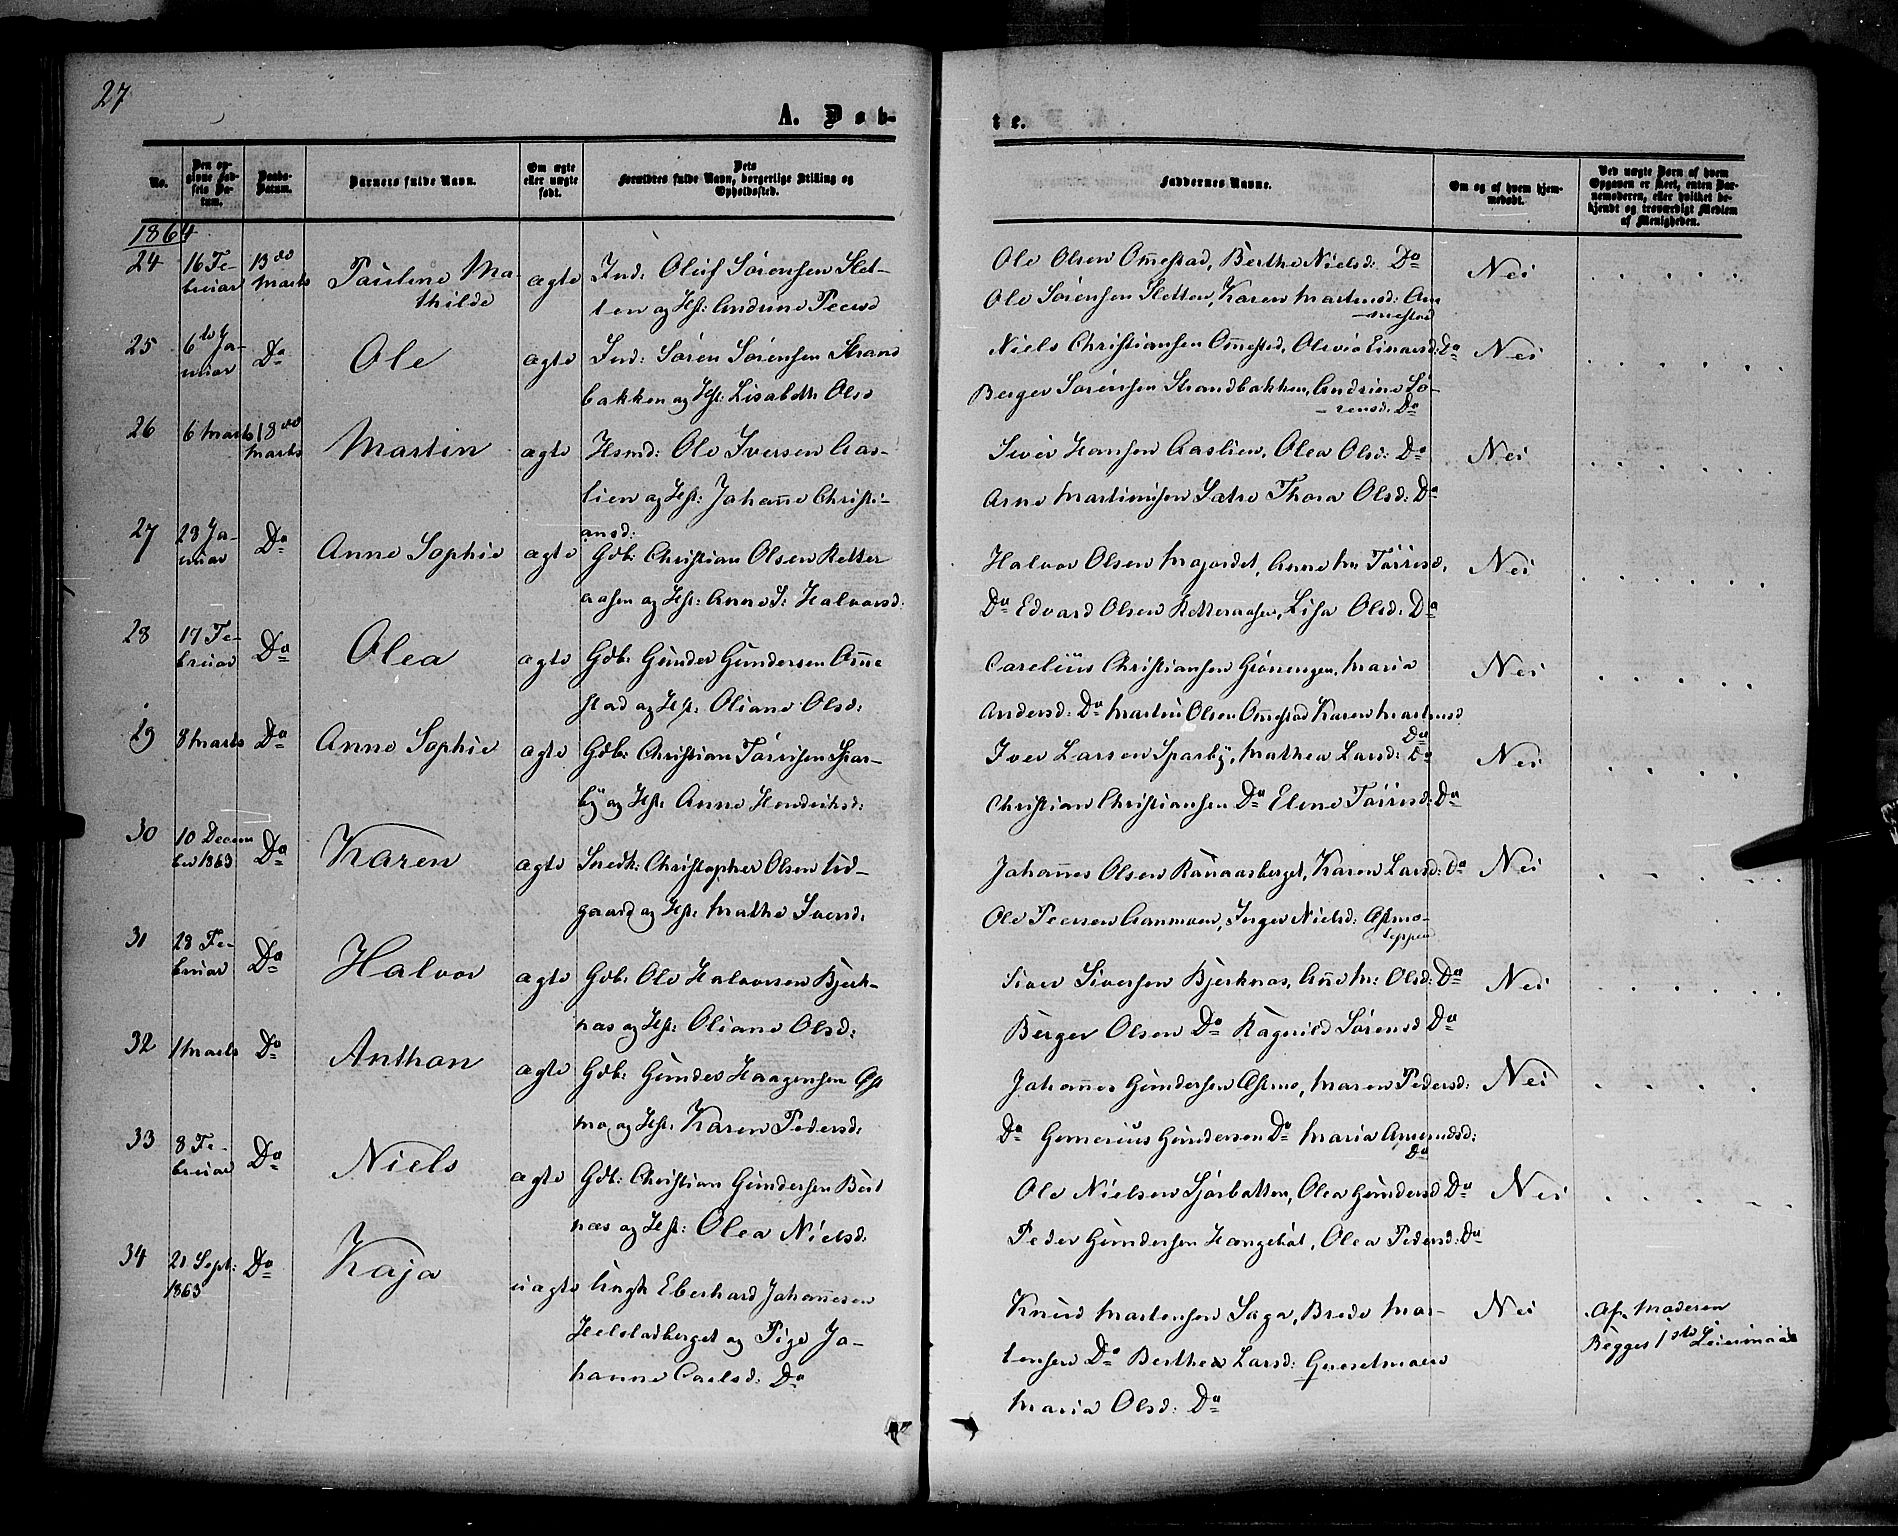 27
A. Døb-
te.
No.
Den op-
givne Fød-
sels Da-
tum.
Daabs-
Datum.
Barnets fulde Navn.
Om ægte
eller uægte
født.
Dets
Forældres fulde Navn, borgerlige Stilling og
Opholdssted.
Faddernes Navne.
Om og af hvem hjem-
medøbt.
Ved uægte Børn af hvem
Opgaven er skeet, enten Bar-
nemoderen, eller hvilket be-
kjendt og troværdigt Medlem
af Menigheden.
1864
24 16 Fe-
bruar 13de
Marts Pauline Ma-
thilde ægte Ind: Oluf Sørensen Slet-
ten og Hst: Andrine Peersd
Ole Olsen Ommestad, Berthe Nielsd: Do
Ole Sørensen Sletten, Karen Martensd: Om
mestad
Nei
25 6te Ja-
nuar Do Ole ægte Ind: Søren Sørensen Strand
bakken og Hst: Lisabeth Olsd
Niels Christiansen Ommestad, Olevia Einarsd: Do
Berger Sørensen Strandbakken, Andrine Sø-
rensd: Do
Nei
26 6 Marts 18de
Marts Martin ægte Hsmd: Ole Iversen Aas-
lien og Hst: Johanne Christi-
ansd:
Siver Hansen Aaslien, Olea Olsd: Do
Arne Martinusen Sætre Thora Olsd: Do
Nei
27 23 Ja-
nuar Do Anne Sophie ægte Gdb: Christian Olsen Ketter
aasen og Hst: Anne S: Halvorsd:
Halvor Olsen Mojordet, Anne M: Tørresd:
Do Edvard Olsen Ketteraasen, Lisa Olsd: Do
Nei
28 17 Fe-
bruar Do Olea ægte Gdb: Gunder Gundersen Omme
stad og Hst: Oliane Olsd:
Carelius Christiansen Grønengen, Maria
Andersd: Do Martin Olsen Ommestad Karen Martinsd
Do
Nei
29 8 Marts Do Anne Sophie ægte Gdb: Christian Tørrisen Spar-
by og Hst: Anne Hendriksd:
Iver Larsen Sparby, Mathea Larsd: Do
Christian Christiansen Do Elene Tørrisd: Do
Nei
30 10 Decem
ber 1863 Do Karen ægte Snedk: Christopher Olsen Ud-
gaard og Hst: Mathe Iversd:
Johannes Olsen Ranaasberget, Karen Larsd: Do
Ole Peersen Aanmoen, Inger Nielsd: Østmo-
teppen
Nei
31 28 Fe-
bruar Do Halvor ægte Gdb: Ole Halvorsen Bjerk-
næs og Hst: Oliane Olsd:
Siver Siversen Bjerknæs, Anne M: Olsd: Do
Berger Olsen Do Ragnild Sørensd Do
Nei
32 1 Marts Do Anthon ægte Gdb: Gunder Haagensen Øst
mo og Hst: Karen Pedersd:
Johannes Gundersen Østmo, Maren Pedersd:
Do Gomerius Gundersen Do Maria Amundsd:
Do
Nei
33 8 Fe-
bruar Do Niels ægte Gdb: Christian Gundersen Bert
næs og Hst: Olea Nielsd:
Ole Nielsen Sjørbotten, Olea Gundersd Do
Peder Gundersen Hængehol, Olea Pedersd: Do
Nei
34 21 Sept:
1863 Do Kaja uægte Ungk Eberhard Johannesen
Helstadberget og Pige Jo-
hanne Carlsd: Do
Knud Martensen Saga, Brede Mar-
tensen Do Berthea Larsd: Grasetmoen
Maria Olsd: Do
Nei
Af Moderen
Begges 1ste Leiermaal